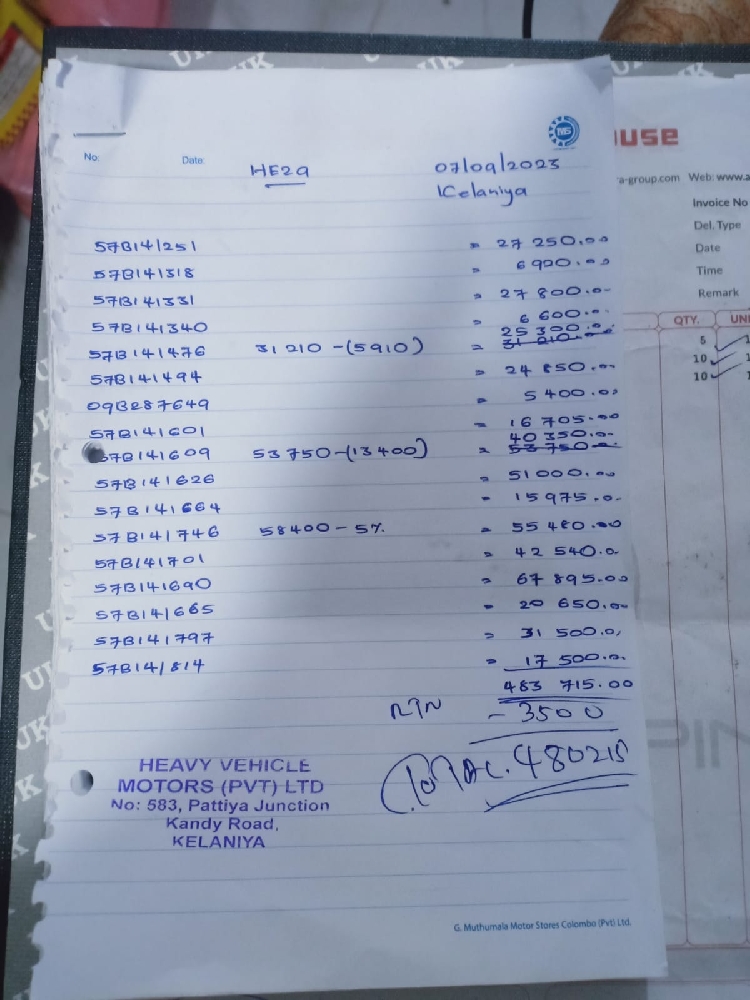 UK
No: Date: HE29 07/09/2023
Kelaniya
57B141251 = 27 250.00
57B141318 = 6 920.00
57B141331 = 27 800.0-
57B141340 = 6 600.0-
25 300.0-
57B141476 31 210 -(5910) = 31 210.00
57B141494 = 24 850.00
09B287649 = 5 400.00
57B141601 = 16 705.00
40 350.0-
57B141609 53 750 -(13 400) = 53 750.0-
57B141626 = 51 000.00
57B141664 - 15 975.0-
57B141746 58400 - 5% = 55 480.00
57B141701 = 42 540.0
57B141690 = 67 895.00
57B141665 = 20 650.00
57B141797 = 31 500.0
57B141814 = 17 500.0.
483 715.00
RTN - 3500
Total. 480215
HEAVY VEHICLE
MOTORS (PVT) LTD
No: 583, Pattiya Junction
Kandy Road,
KELANIYA
G. Muthumala Motor Stores Colombo (Pvt) Ltd.
use
a-group.com Web: www.a
Invoice No
Del. Type
Date
Time
Remark
QTY. UN
5
10
10